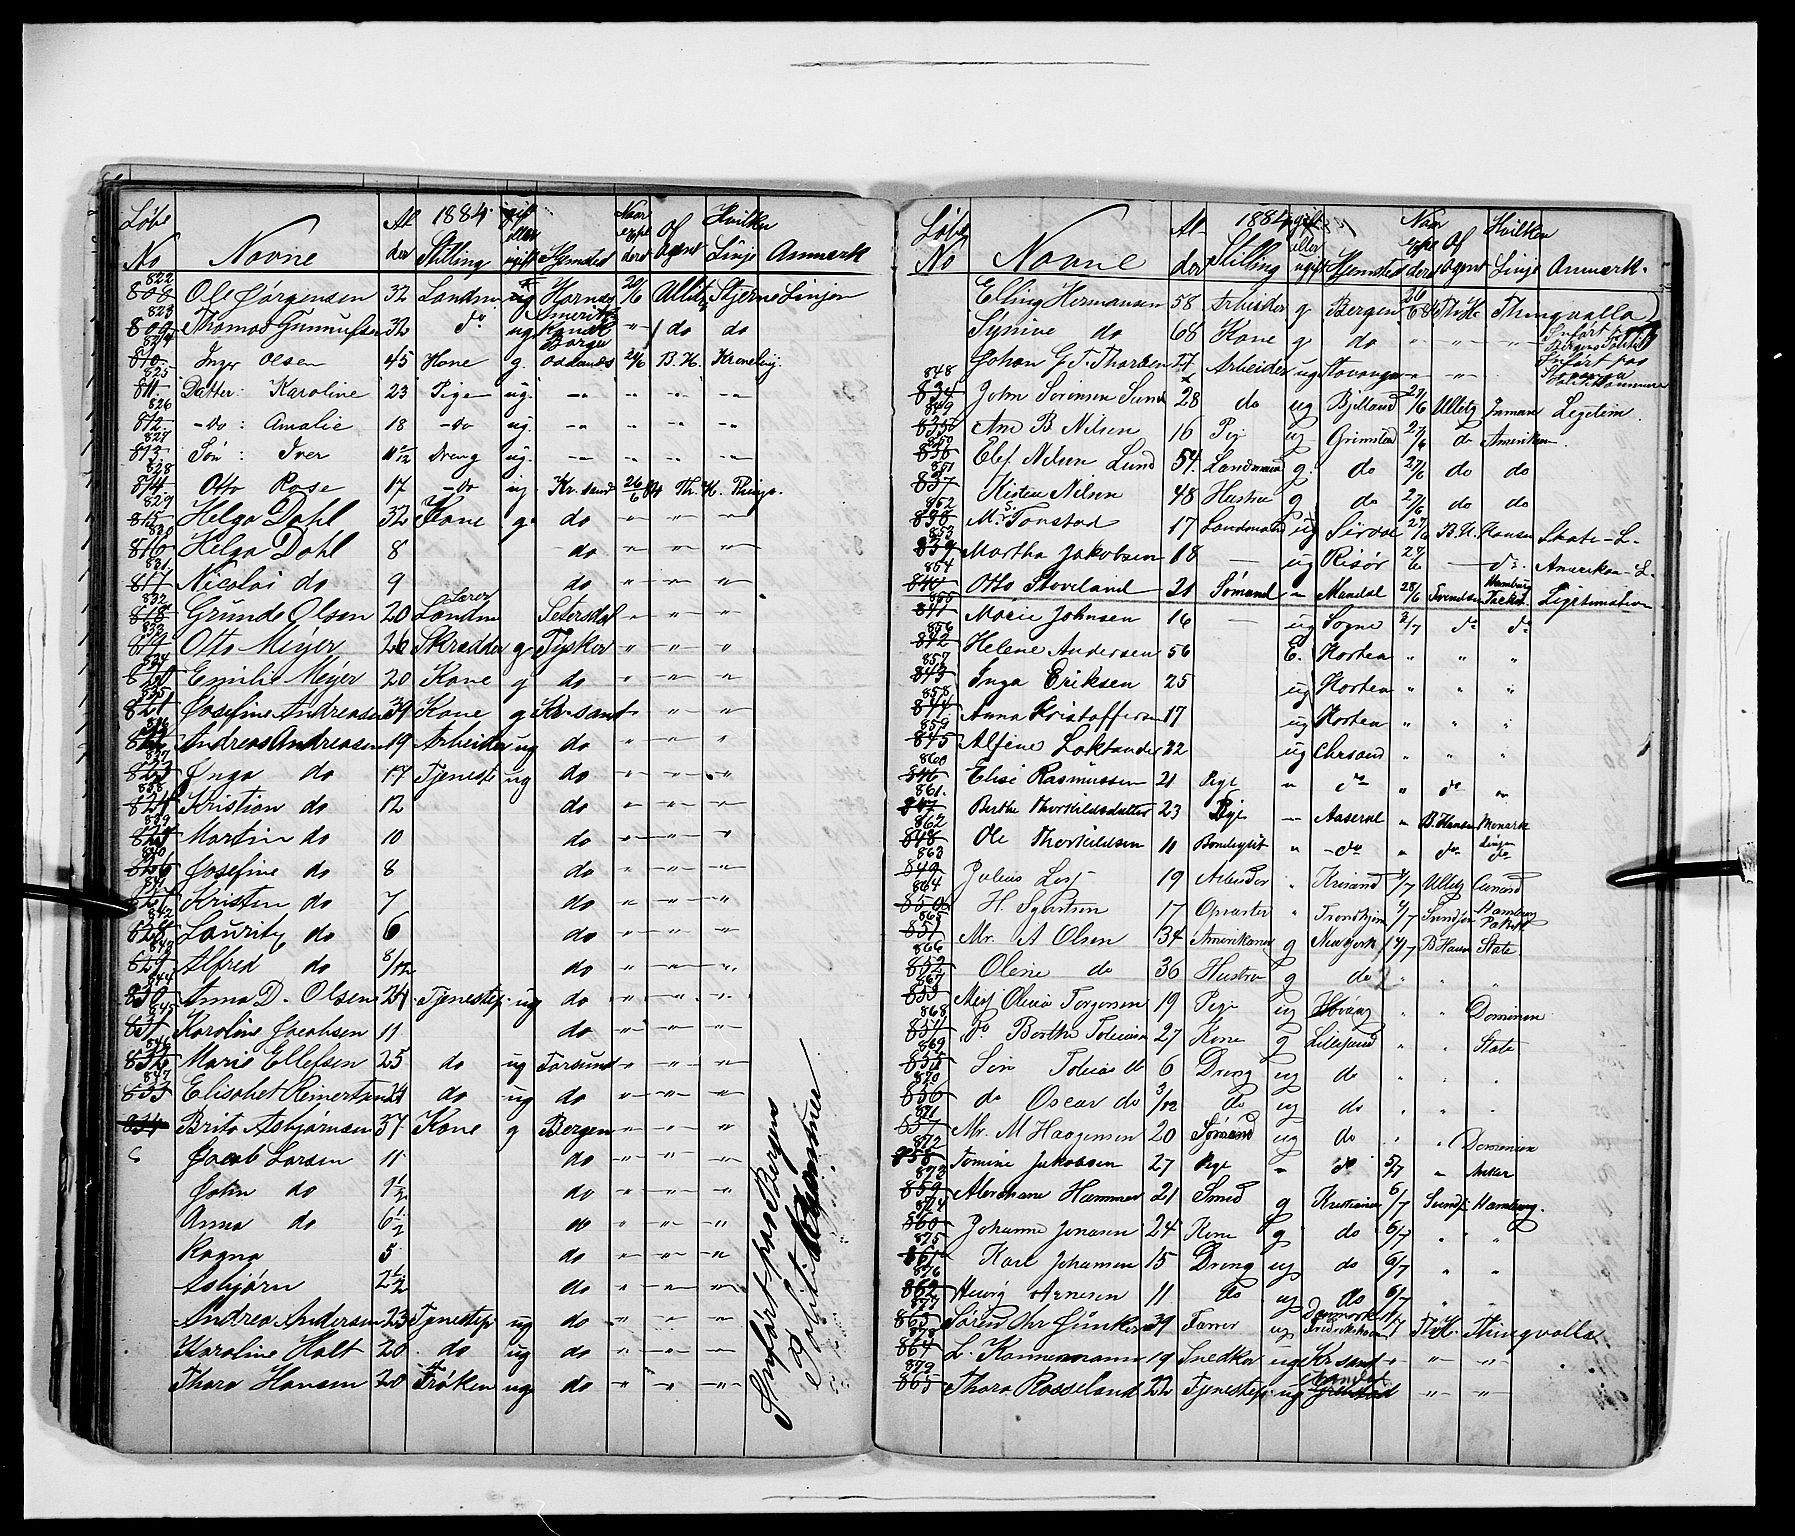 Løbe No Navne Alder 1884 Stilling gift eller ugift Hjemsted Naar expederet Af Agent Hvilken Linje Anmærk
822 808 Ole Jørgensen 32 Landm ug Hornæs 20/6 Ullitz Stjerne Linjen
823 809 Thomas Gunnufsen 32 do ug "/" do do
824 810 Inger Olsen 45 Kone g. 24/6 B.H. Kronelinj
825 811 Datter: Karoline 23 Pige ug. -"- -"- -"- -"-
826 812 -do: Amalie 18 -do ug. -"- -"- -"- -"-
827 813 Søn: Iver 11/12 Dreng ug. -"- -"- -"- -"-
828 814 Otto Rose 17 -do ug Kr.sand 26/6 84 Th. H. Thingv.
829 815 Helga Dahl 32 Kone g. do " " "
830 816 Helga Dahl 8 do " " "
831 817 Nicolai do 9 do " " "
832 818 Grunde Olsen 20 Lærer Landm Setersdal " " "
833 819 Otto Meyer 26 Skrædder g Tysker " " "
834 820 Emilie Meyer 20 Kone g do " " "
835 821 Josefine Andreasen 39 Kone g Kr.sand " " "
836 822 Andreas Andreasen 19 Arbeider ug do " " "
837 823 Inga do 17 Tjeneste ug do " " "
838 824 Kristian do 12 do " " "
839 825 Martin do 10 do " " "
840 826 Josefine do 8 do " " "
841 827 Kristin do 7 do " " "
842 828 Lauritz do 6 do " " "
843 829 Alfred do 8/12 do " " "
844 830 Anna D. Olsen 24 Tjenestep. ug do " " "
845 831 Karoline Jacobsen 11 do " " "
846 832 Marie Ellefsen 25 do ug Farsund " " "
847 833 Elisabet Reinertsen 24 do ug do " " "
834 Brita Asbjørnsen 37 Kone g Bergen " " "
Jacob Larsen 11 do " " "
John do 9 1/2 do " " "
Anna do 6 1/2 do " " "
Ragna 5 do " " "
Asbjørn 2 1/2 do " " "
Andrea Andersen 23 Tjenestep ug do " " "
Karoline Holt 20 do ug do " " "
Thora Hansen 20 Frøken ug do " " "
Indført paa Bergens Politikammer
Løbe No Navne Alder 1884 Stilling gift eller ugift Hjemsted Naar expederet Af Agent Hvilken Linje Anmærk.
Elling Hermansen 58 Arbeider g Bergen 26/6 84 Th.H. Thingvalla
Synive do 68 Kone g do " " " Indført paa Bergens Politik
Johan G. T. Tharsen 27 Arbeider ug Stavanger " " Indført paa Stavanger Politikammer
848 834 John Sørensen Sund 28 do ug Bjelland 27/6 Ullitz Inman Legitim
849 835 Ane B Nilsen 16 Pig ug Grimstad 27/6 do Amerikan.
850 836 Elef Nelsen Lund 54 Landmand g do 27/6 do do
851 837 Kisten Nelsen 48 Hustru g do 27/6 do do
852 838 M. S. Tonstad 17 Landmand ug Sirdal 27/6 B.H. Hansen State-L.
853 839 Martha Jakobsen 18 — ug Risør 27/6 — do Amerikan-L.
854 840 Otto Skoveland 21 Sømand " Mandal 28/6 Svendsen Hamburg Packet Legitimation
855 841 Marie Johnsen 16 — ug Sogne 2/7 do do
856 842 Helene Andersen 56 E. Horten " " "
857 843 Inga Eriksen 25 ug Horten " " "
858 844 Anna Kristoffersen 17 ug Horten " " "
859 845 Alfine Loktander 22 ug Chrsand " " "
860 846 Elise Rasmussen 21 Pige " do " do "
861. 847 Berthe Thorkildsdatter 23 Pige " Aaseral " B. Hansen Monark Linje
862 848 Ole Thorkildsen 11 Bondegut " do " do do
863 849 Julius 19 Arbeider " Krisand 4/7 Ullitz Cunard
864 850 H. 17 Opvarter " Trondhjem 4/7 Svendsen Hamburg Paket
865 851 Mr. A Olsen 34 Amerikaner g Newyork 4/7 B Hansen State
866 852 Oline do 36 Hustru g do " " "
867 853 Miss Olivia Torgersen 19 Pige ug " " Dominion
868 854 do Berthe Tobiasen 27 Kone g Lillesand " " State
869 855 Søn Tobias do 6 Dreng ug do " " "
870 856 do Oscar do 3/12 do ug do " " "
871 857 Mr. M Haagensen 20 Sømand ug do " " Dominion
872 858 Tomine Jakobsen 27 Pige " do 5/7 " Anker
873 859 Abraham Hammer 21 Smed g Kristiania 6/7 Svends. Hamburg.
874 860 Johanne Jonasen 24 Kone g do 6/7 " "
875 861 Karl Johansen 15 Dreng ug do 6/7 " "
876 862 Georg Arnesen 11 do ug do 6/7 " "
877 863 Søren Chr Junker 39 Farver ug Danmark Frederikshavn /7 Th.H. Thingvalla
878 864 L. Kannemann 19 Snedker ug Kr.sand " " "
879 865 Thora Rosseland 22 Tjenestep. ug Mandal " "